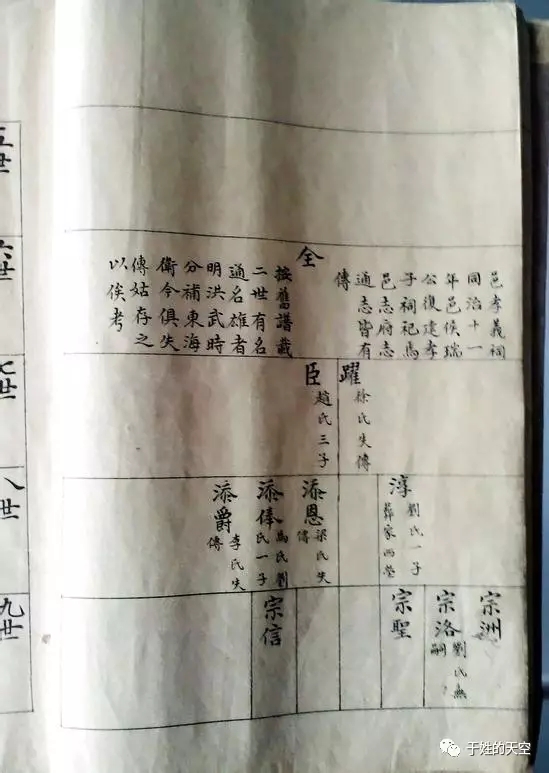 邑孝義祠
同治十一
年邑侯瑞
公復建孝
子祠祀焉
邑志府志
通志皆有
傳
全
按舊譜載
二世有名
通名雄者
明洪武時
分補東海
衛今俱失
傳姑存之
以俟考
躍
徐氏失傳
臣
趙氏三子
淳
劉氏一子
葬家西塋
添恩
梁氏失
傳
添俸
馬氏劉
氏一子
添爵
李氏失
傳
宗洲
宗洛
劉氏無
嗣
宗聖
宗信
五世
六世
七世
八世
九世
于姓的天空